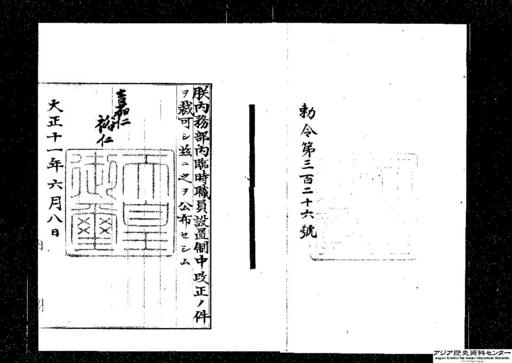 勅令第三百二十六號
朕内務部内臨時職員設置制中改正ノ件
ヲ裁可シ茲ニ之ヲ公布セシム
嘉仁
裕仁
天皇御璽
大正十一年六月八日
アジア歴史資料センター
Japan Center for Asian Historical Records